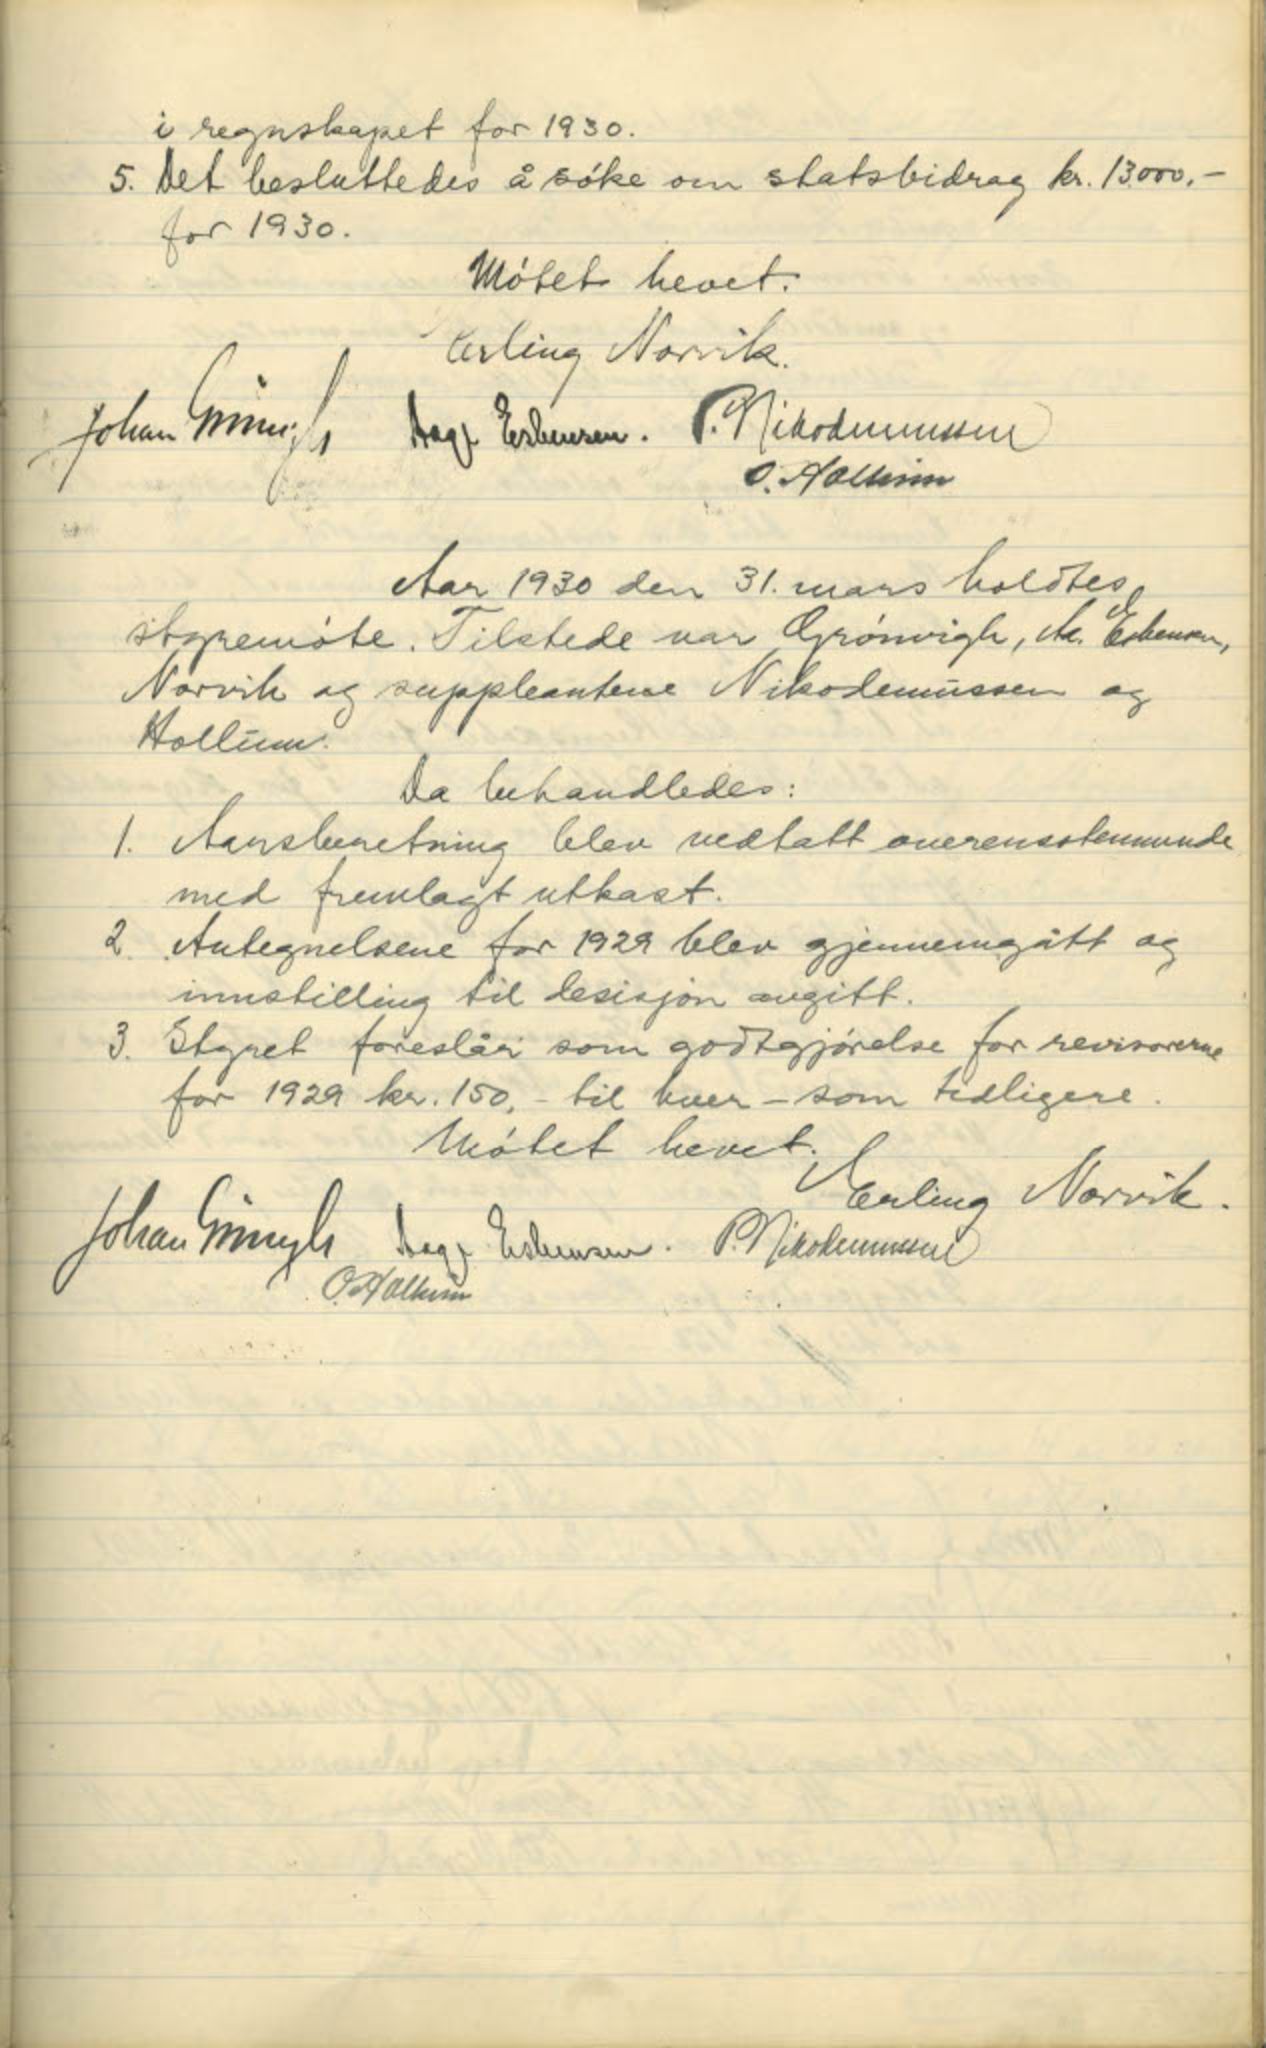 i regnskapet for 1930.
5. Det besluttedes å søke om statsbidrag kr. 13000.-
for 1930.
Møtet hevet.
Erling Norvik.
Johan Grønvigh Aage Esbensen. P. Nikodemussen
O. Hollum
Aar 1930 den 31. mars holdtes
styremøte. Tilstede var Grønvigh, Aa. Esbensen,
Norvik og suppleantene Nikodemussen og
Hollum.
Da behandledes:
1. Aarsberetning blev vedtatt overensstemmende
med fremlagt utkast.
2. Antegnelsene for 1929 blev gjennemgått og
innstilling til desisjon avgitt.
3. Styret foreslår som godtgjørelse for revisorerne
for 1929 kr. 150,- til hver - som tidligere.
Møtet hevet.
Erling Norvik.
Johan Grønvigh Aage Esbensen. P. Nikodemussen
O. Hollum